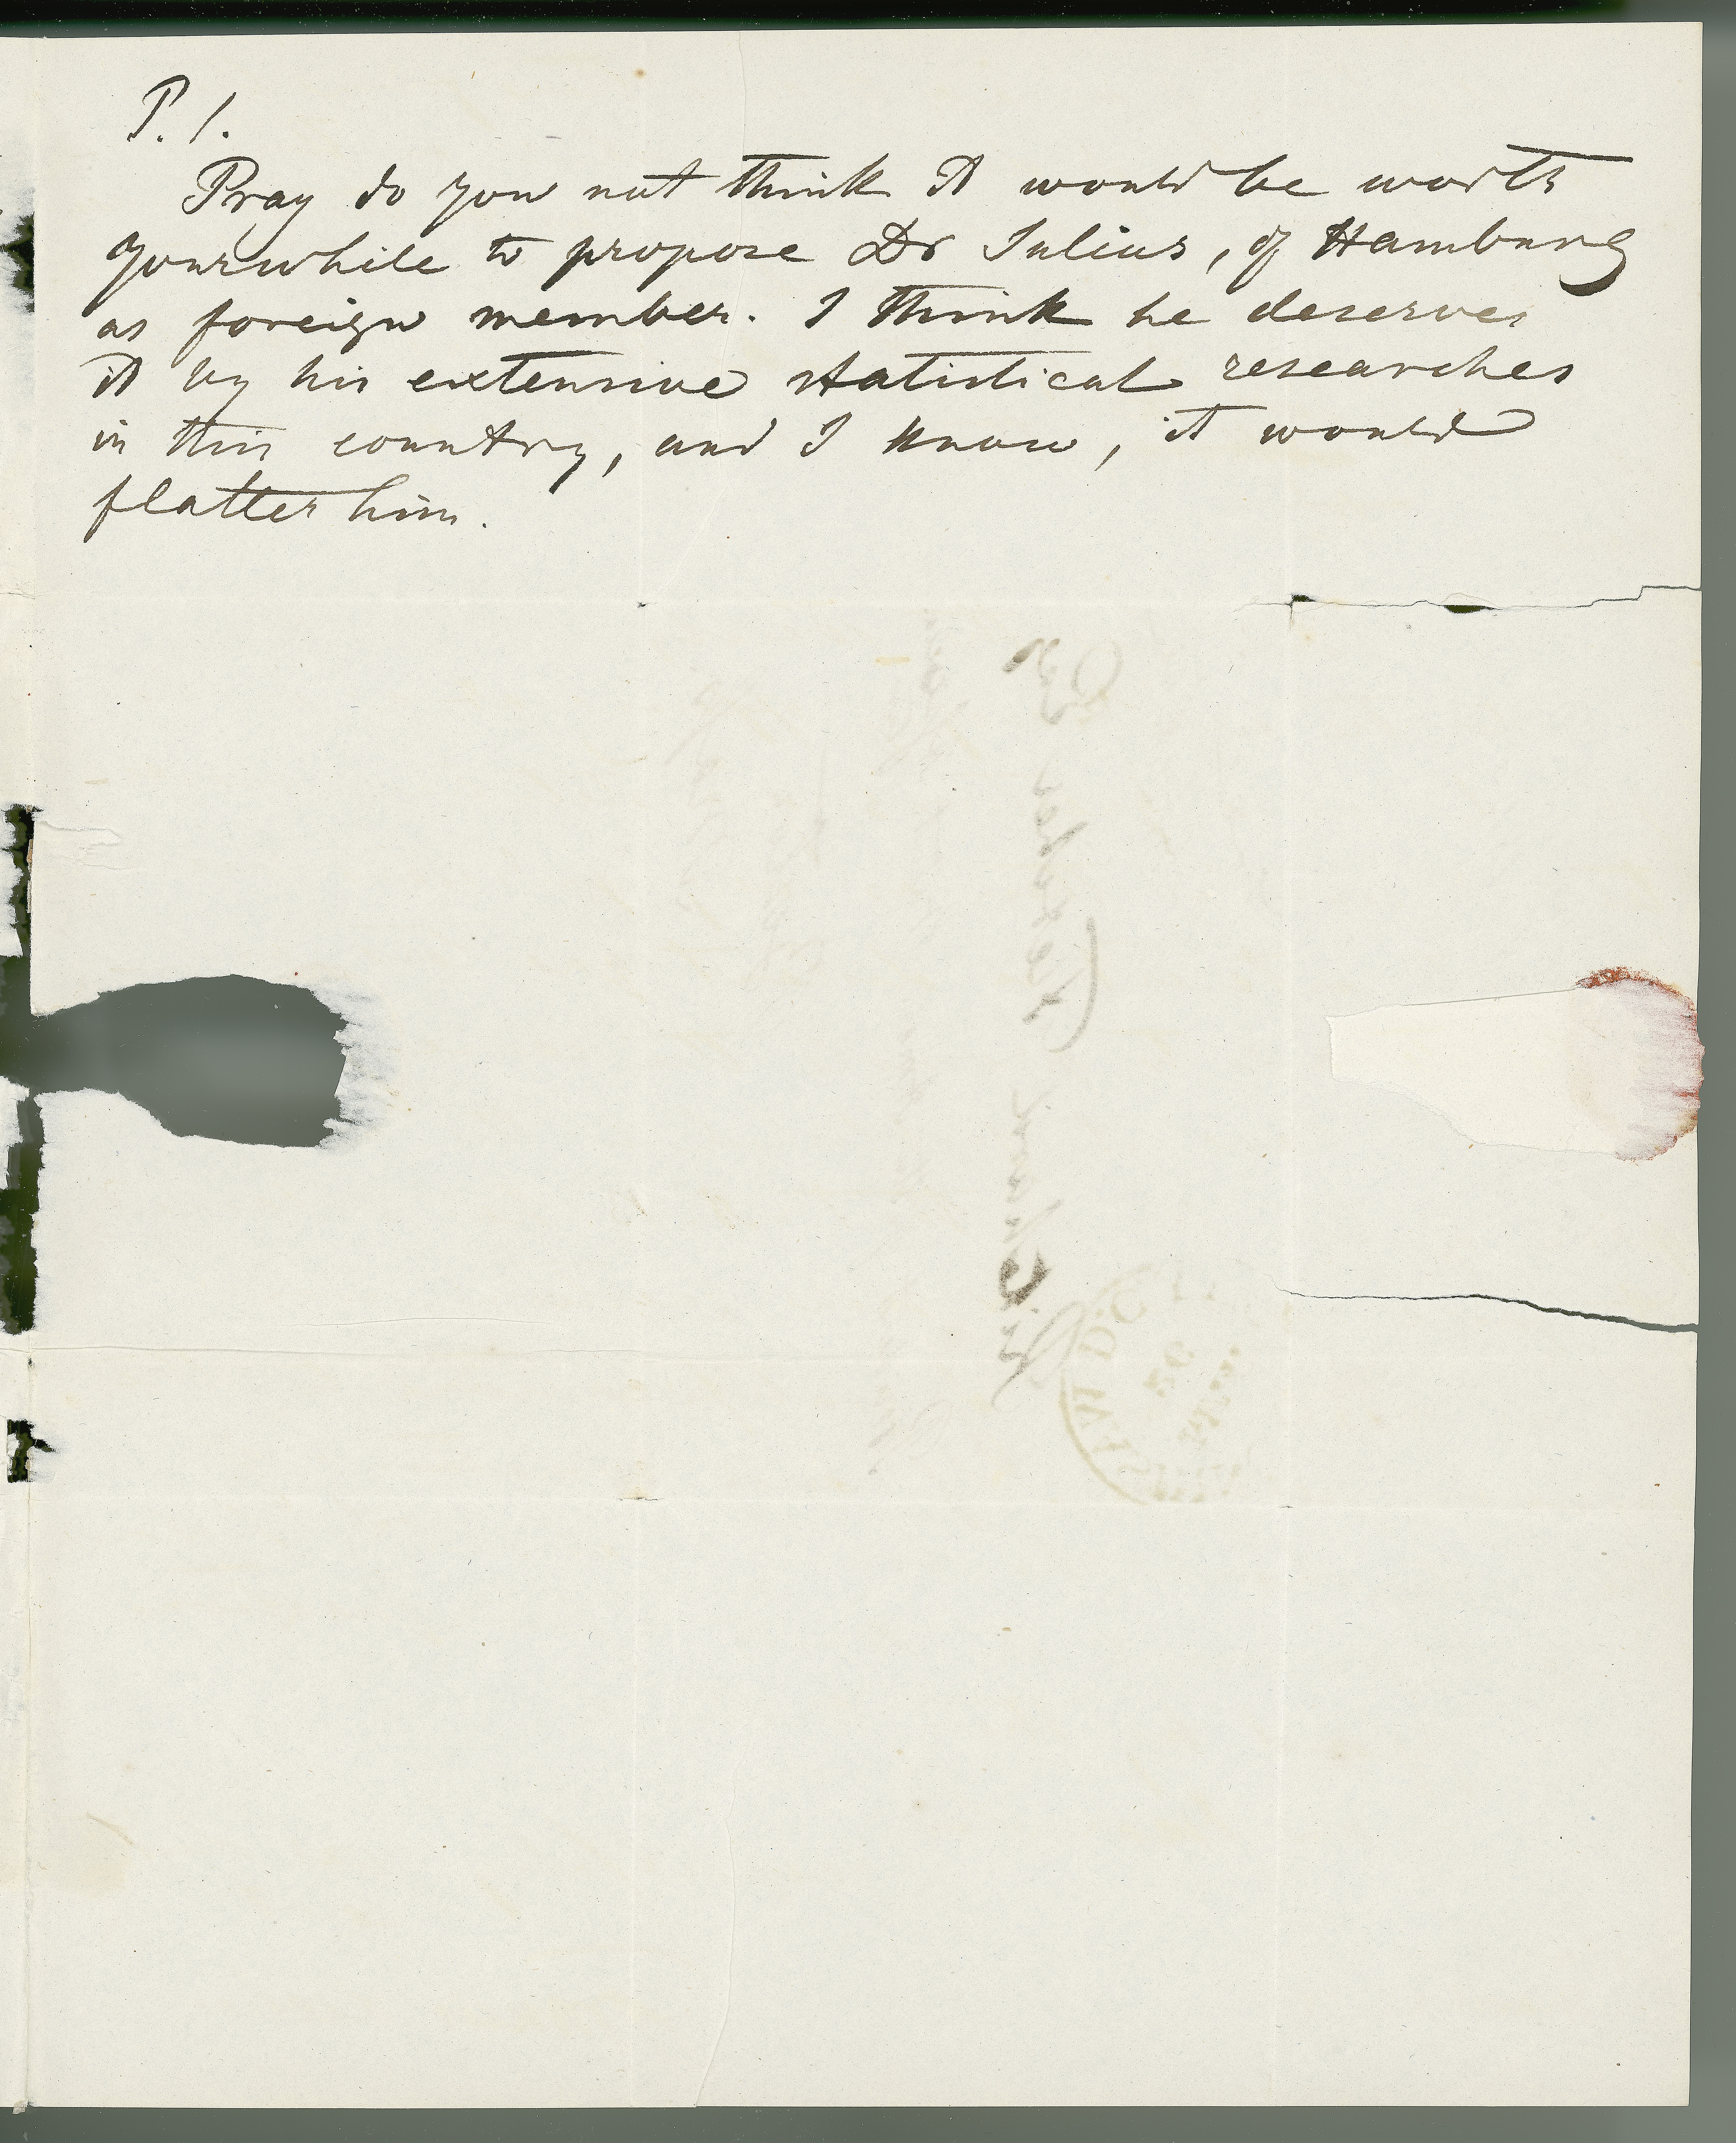 P. S.
Pray do you not think it would be worth
your while to propose Dr Julius, of Hamburg
as foreign member. I think he deserves
it by his extensive statistical researches
in this country, and I know, it would
flatter him.